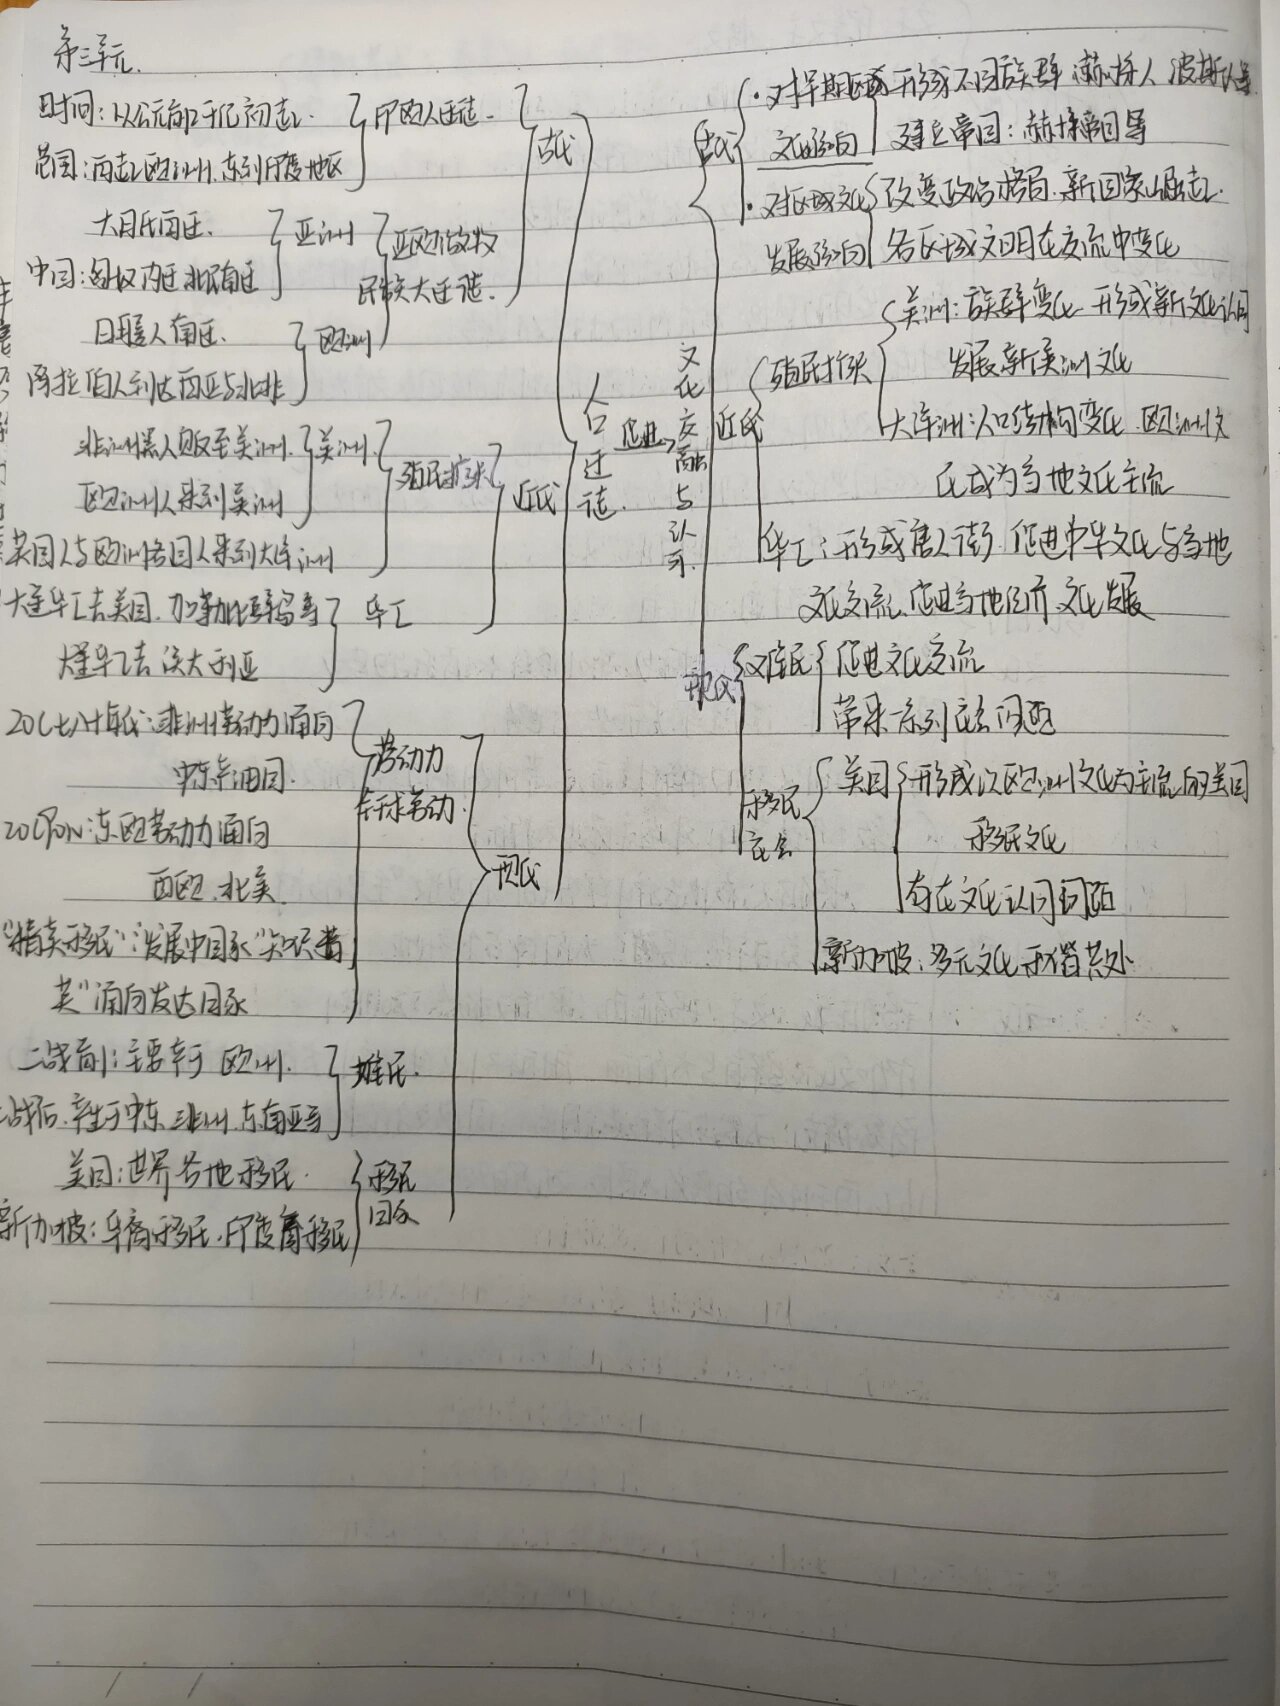 第三单元.
时间:以公元前二千纪初起.
印欧人迁徙.
范围:西起欧洲.东到印度地区
古代
大月氏西迁.
亚洲
亚欧游牧
民族大迁徙.
中国:匈奴内迁 北民南迁
日耳曼人南迁.
欧洲
阿拉伯人到达西亚与北非
非洲黑人贩至美洲.
美洲.
欧洲人来到美洲
殖民扩张
近代
英国人与欧洲各国人来到大洋洲
大量华工去美国.加勒比群岛等
华工
大量华工去澳大利亚
20C七八十年代:非洲劳动力涌向
中东产油国.
劳动力
全球劳动.
20C90N:东欧劳动力涌向
西欧.北美.
现代
"精英移民":发展中国家"知识精
英"涌向发达国家
二战前:主要在于欧洲.
难民.
二战后.产生于中东.非洲.东南亚等
美国:世界各地移民.
移民
国家
新加坡:华裔移民.印度裔移民
人口迁徙.
促进→
文化交融与认可.
古代
·对早期区域
文化影响
形成不同族群 赫梯人 波斯人等
建立帝国:赫梯帝国等
·对区域文化
发展影响
改变政治格局.新国家崛起.
各区域文明在交流中变化
近代
殖民扩张
美洲:族群变化 形成新文化认同
发展新美洲文化
大洋洲:人口结构变化.欧洲文
化成为当地文化主流
华工:形成唐人街.促进中华文化与当地
文化交流.促进当地经济 文化发展
现代
难民
促进文化交流
带来一系列社会问题
移民
社会
美国
形成以欧洲文化为主流的美国
移民文化
存在文化认同问题
新加坡:多元文化和谐共处